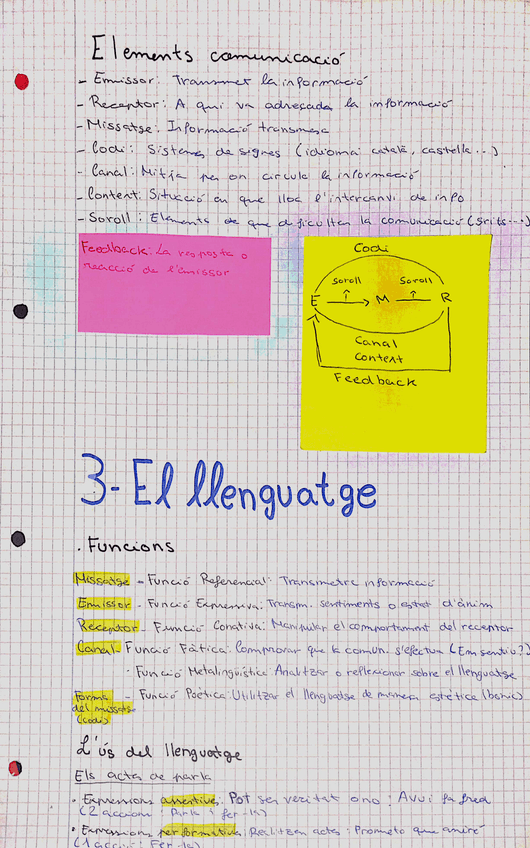 Elements comunicació
- Emissor: Transmet la informació
- Receptor: A qui va adreçada la informació
- Missatge: Informació transmesa
- Codi: Sistema de signes (idioma: català, castellà...)
- Canal: Mitjà per on circula la informació
- Content: Situció en que lloc l'intercanvi de info
- Soroll: Elements de que dificulten la comunicació (Grits...)
Feedback: La resposta o
reacció de l'emissor
Codi
Soroll Soroll
E M R
Canal
Content
Feedback
3- El llenguatge
. Funcions
Missatge - Funció Referencial: Transmetre informació
Emissor - Funció Expressiva: Transm. sentiments o estat d'ànim
Receptor - Funció Conativa: Manipular el comportament del receptor
Canal - Funció Fàtica: Comprorar que la comun. s'efectua (Em sentiu?)
· Funció Metalingüística Analitzar o reflexionar sobre el llenguatge
Forma - Funció Poètica: Utilitzar el llenguatge de manera estètica
del missatge
(codi)
L'ús del llenguatge
Els acta de parla
· Expressions assertives: Pot ser veritat o no: Avui fa fred
(2 accions: Parla i fer-la)
· Expressions performatives: Realitzen acta: Prometo que aniré
(1 acció: Fer-la)